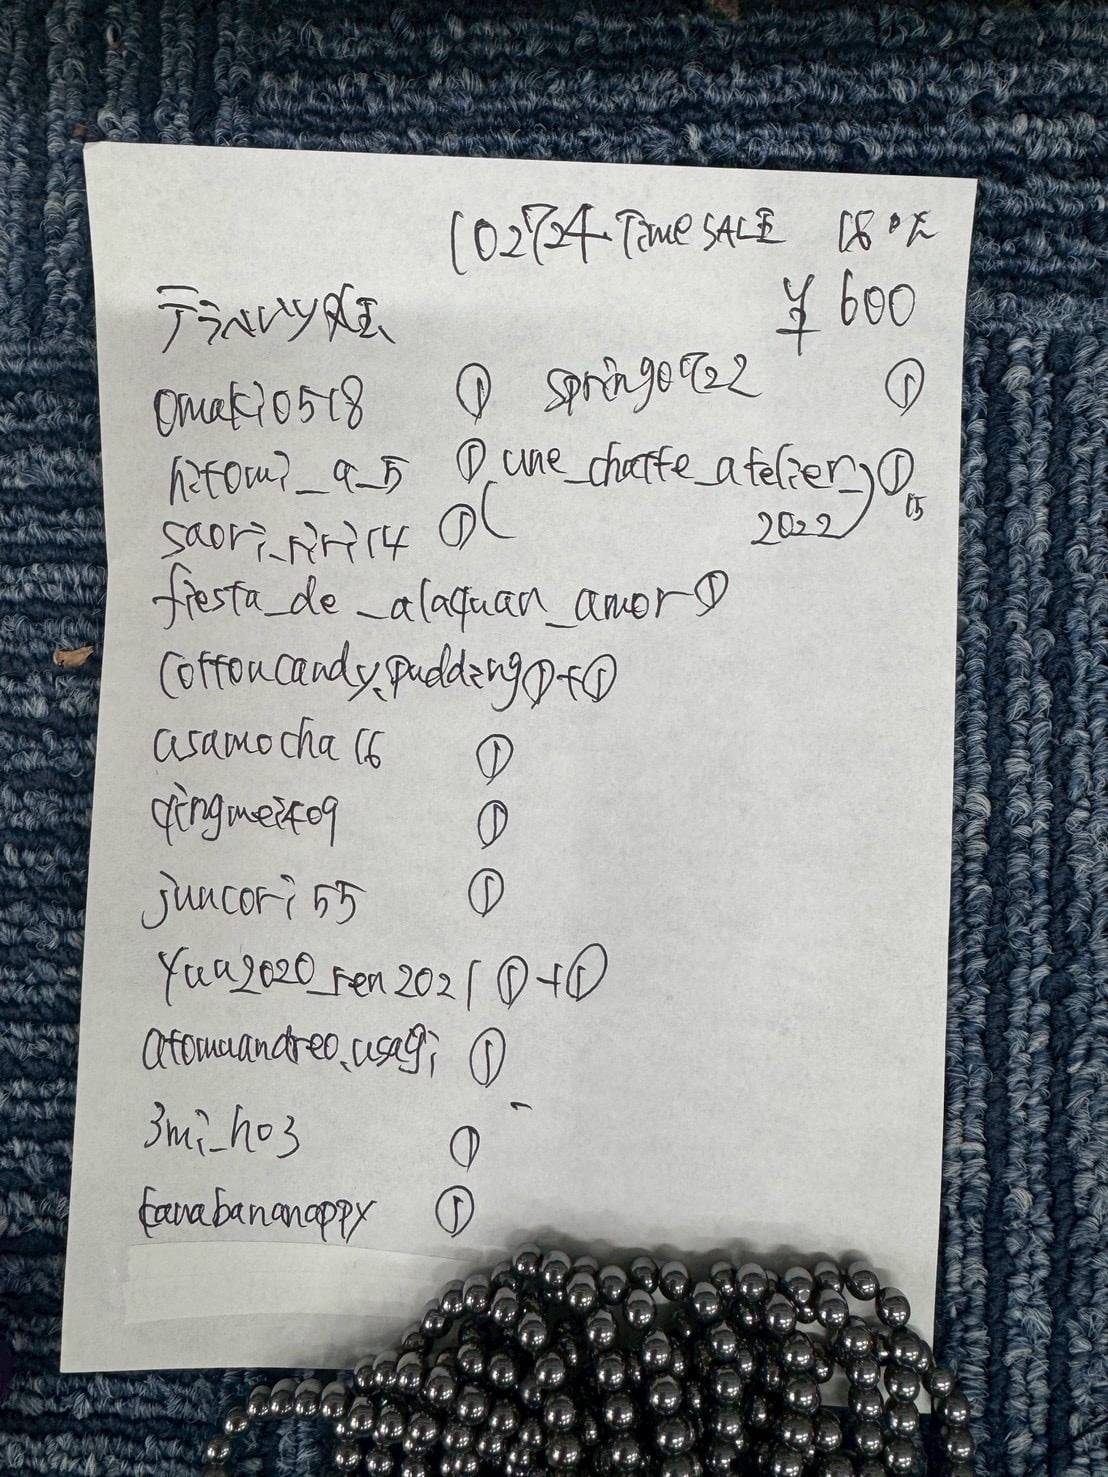 102724 Time SALE 18.0%
¥600
テラヘルツ
omaki0518 ① springo722 ①
hitomi_a_5 ① une_chatte_atelier_ ①
saori_riri14 ① ( 2022) 15
fiesta_de_alaquan_amor ①
cottoncandy.pudding ①+①
asamocha16 ①
qingmei409 ①
juncori55 ①
yuu2020_ren2021 ①+①
atomuandreo.usagi ①
3mi_ho3 ①
tanabananappy ①